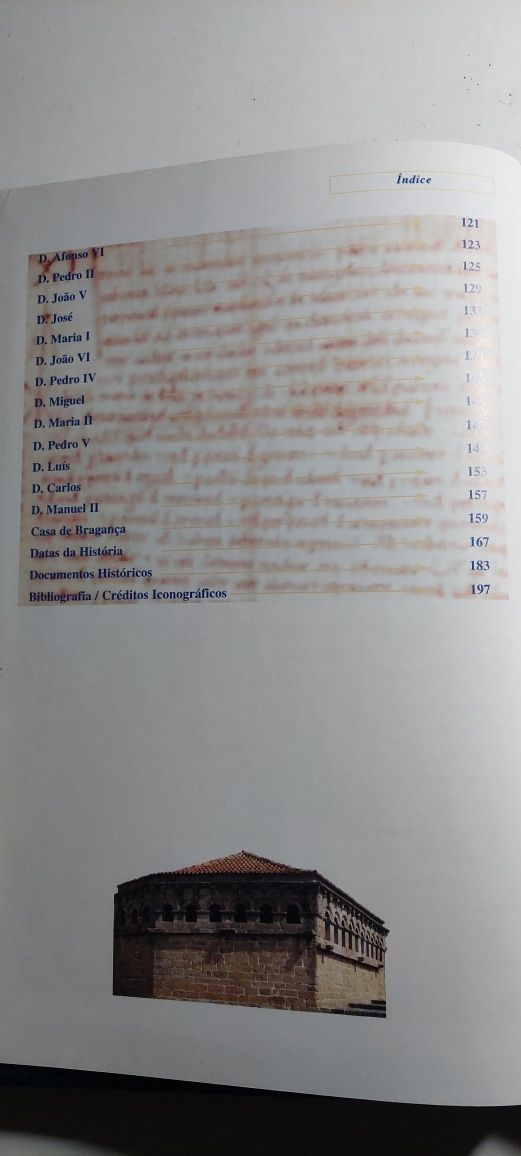 Índice
D. Afonso VI 121
D. Pedro II 123
D. João V 125
D. José 129
D. Maria I
D. João VI
D. Pedro IV
D. Miguel
D. Maria II
D. Pedro V
D. Luís
D. Carlos 153
D. Manuel II 157
Casa de Bragança 159
Datas da História 167
Documentos Históricos 183
Bibliografia / Créditos Iconográficos 197